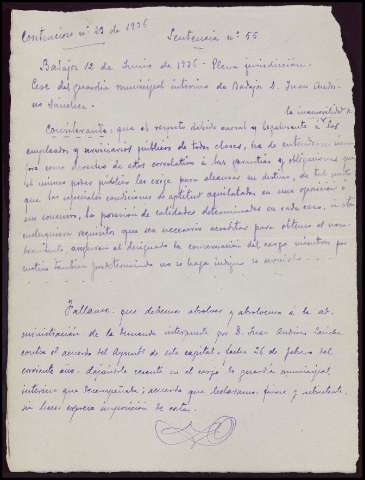 Contencioso nº 29 de 1936
Sentencia nº 55
Badajoz 12 de Junio de 1936 - Plena jurisdicción.
Cese del guardia municipal interino de Badajoz D. Juan Andi-
no Sánchez.
la inamovilidad de
Considerando: que el respeto debido moral y legalmente á los
empleados y funcionarios públicos de todas clases, ha de entenderse
como derecho de estos correlativo á las garantías y obligaciones que
el mismo poder público les exige para alcanzar su destino, de tal suerte
que las especiales condiciones de aptitud aquilatadas en una oposición ó
un concurso, la posesión de calidades determinadas en cada caso,
cualesquiera requisitos que sea necesario acreditar para obtener el nom-
bramiento amparan al designado la conservación del cargo mientras por
motivos también predeterminados no se haga indigno de servirlo
Fallamos que debemos absolver y absolvemos a la ad-
ministración de la demanda interpuesta por D. Juan Andino Sánchez
contra el acuerdo del Ayunto de esta capital, fecha 26 de febrero del
corriente año dejándole cesante en el cargo de guardia municipal
interino que desempeñaba; acuerdo que declaramos firme y subsistente,
sin hacer expresa imposición de costas.